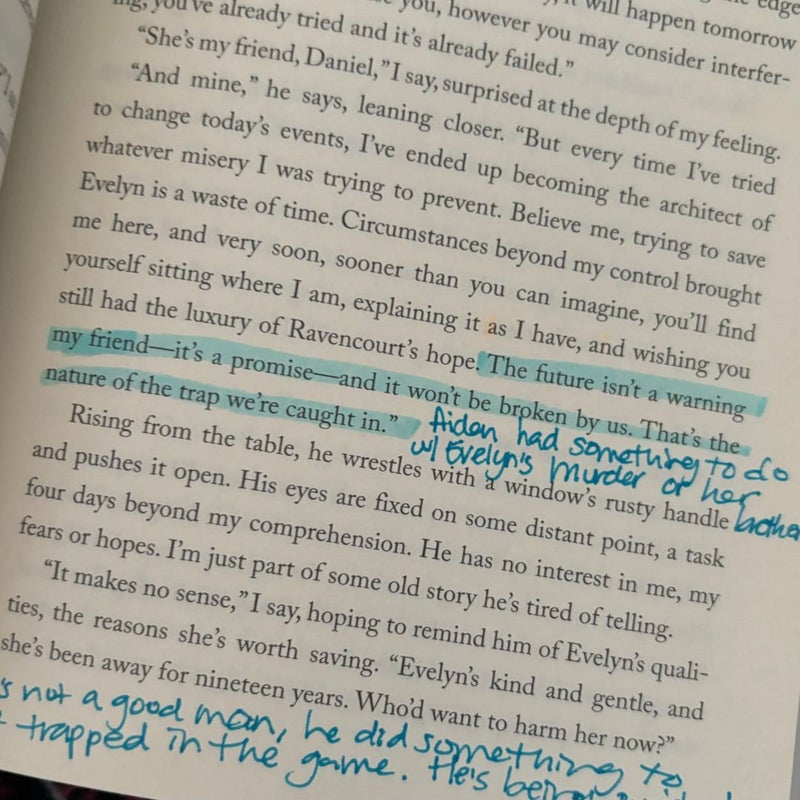 the edge
you, however you may consider interfer-
will happen tomorrow
ing, you've already tried and it's already failed."
"She's my friend, Daniel," I say, surprised at the depth of my feeling.
"And mine," he says, leaning closer. "But every time I've tried
to change today's events, I've ended up becoming the architect of
whatever misery I was trying to prevent. Believe me, trying to save
Evelyn is a waste of time. Circumstances beyond my control brought
me here, and very soon, sooner than you can imagine, you'll find
yourself sitting where I am, explaining it as I have, and wishing you
still had the luxury of Ravencourt's hope. The future isn't a warning
my friend—it's a promise—and it won't be broken by us. That's the
nature of the trap we're caught in."
Aiden had something to do
w/ Evelyn's murder or her
brother
Rising from the table, he wrestles with a window's rusty handle
and pushes it open. His eyes are fixed on some distant point, a task
four days beyond my comprehension. He has no interest in me, my
fears or hopes. I'm just part of some old story he's tired of telling.
"It makes no sense," I say, hoping to remind him of Evelyn's quali-
ties, the reasons she's worth saving. "Evelyn's kind and gentle, and
she's been away for nineteen years. Who'd want to harm her now?"
not a good man, he did something to
trapped in the game. He's being